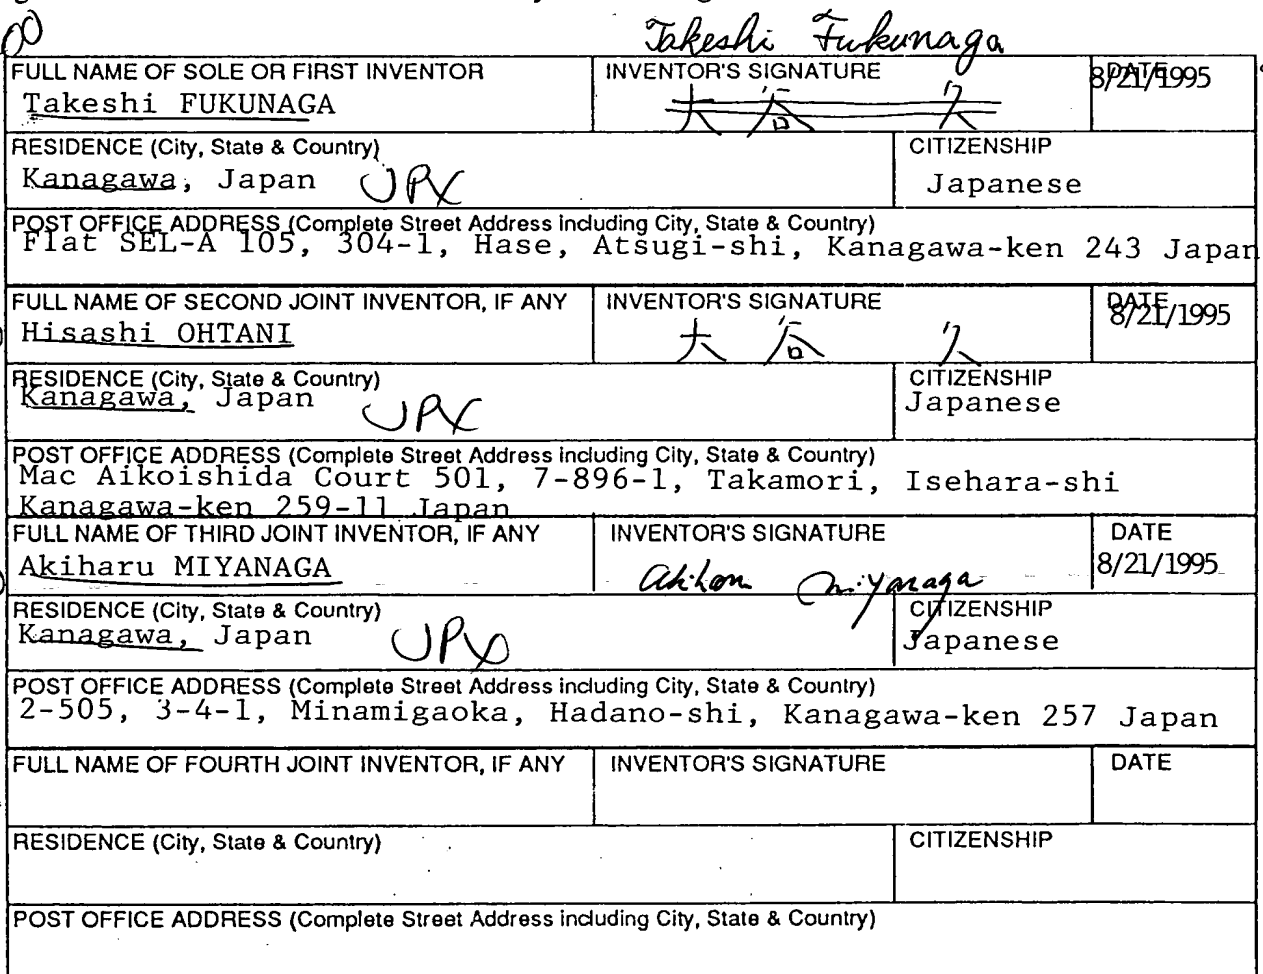 Takeshi Fukunaga
FULL NAME OF SOLE OR FIRST INVENTOR INVENTOR'S SIGNATURE DATE
Takeshi FUKUNAGA 大谷 久 8/21/1995
RESIDENCE (City, State & Country) CITIZENSHIP
Kanagawa, Japan JPX Japanese
POST OFFICE ADDRESS (Complete Street Address including City, State & Country)
Flat SEL-A 105, 304-1, Hase, Atsugi-shi, Kanagawa-ken 243 Japan
FULL NAME OF SECOND JOINT INVENTOR, IF ANY INVENTOR'S SIGNATURE DATE
Hisashi OHTANI 大谷 久 8/21/1995
RESIDENCE (City, State & Country) CITIZENSHIP
Kanagawa, Japan JPX Japanese
POST OFFICE ADDRESS (Complete Street Address including City, State & Country)
Mac Aikoishida Court 501, 7-896-1, Takamori, Isehara-shi
Kanagawa-ken 259-11 Japan
FULL NAME OF THIRD JOINT INVENTOR, IF ANY INVENTOR'S SIGNATURE DATE
Akiharu MIYANAGA Miyanaga 8/21/1995
RESIDENCE (City, State & Country) CITIZENSHIP
Kanagawa, Japan JPX Japanese
POST OFFICE ADDRESS (Complete Street Address including City, State & Country)
2-505, 3-4-1, Minamigaoka, Hadano-shi, Kanagawa-ken 257 Japan
FULL NAME OF FOURTH JOINT INVENTOR, IF ANY INVENTOR'S SIGNATURE DATE
RESIDENCE (City, State & Country) CITIZENSHIP
POST OFFICE ADDRESS (Complete Street Address including City, State & Country)